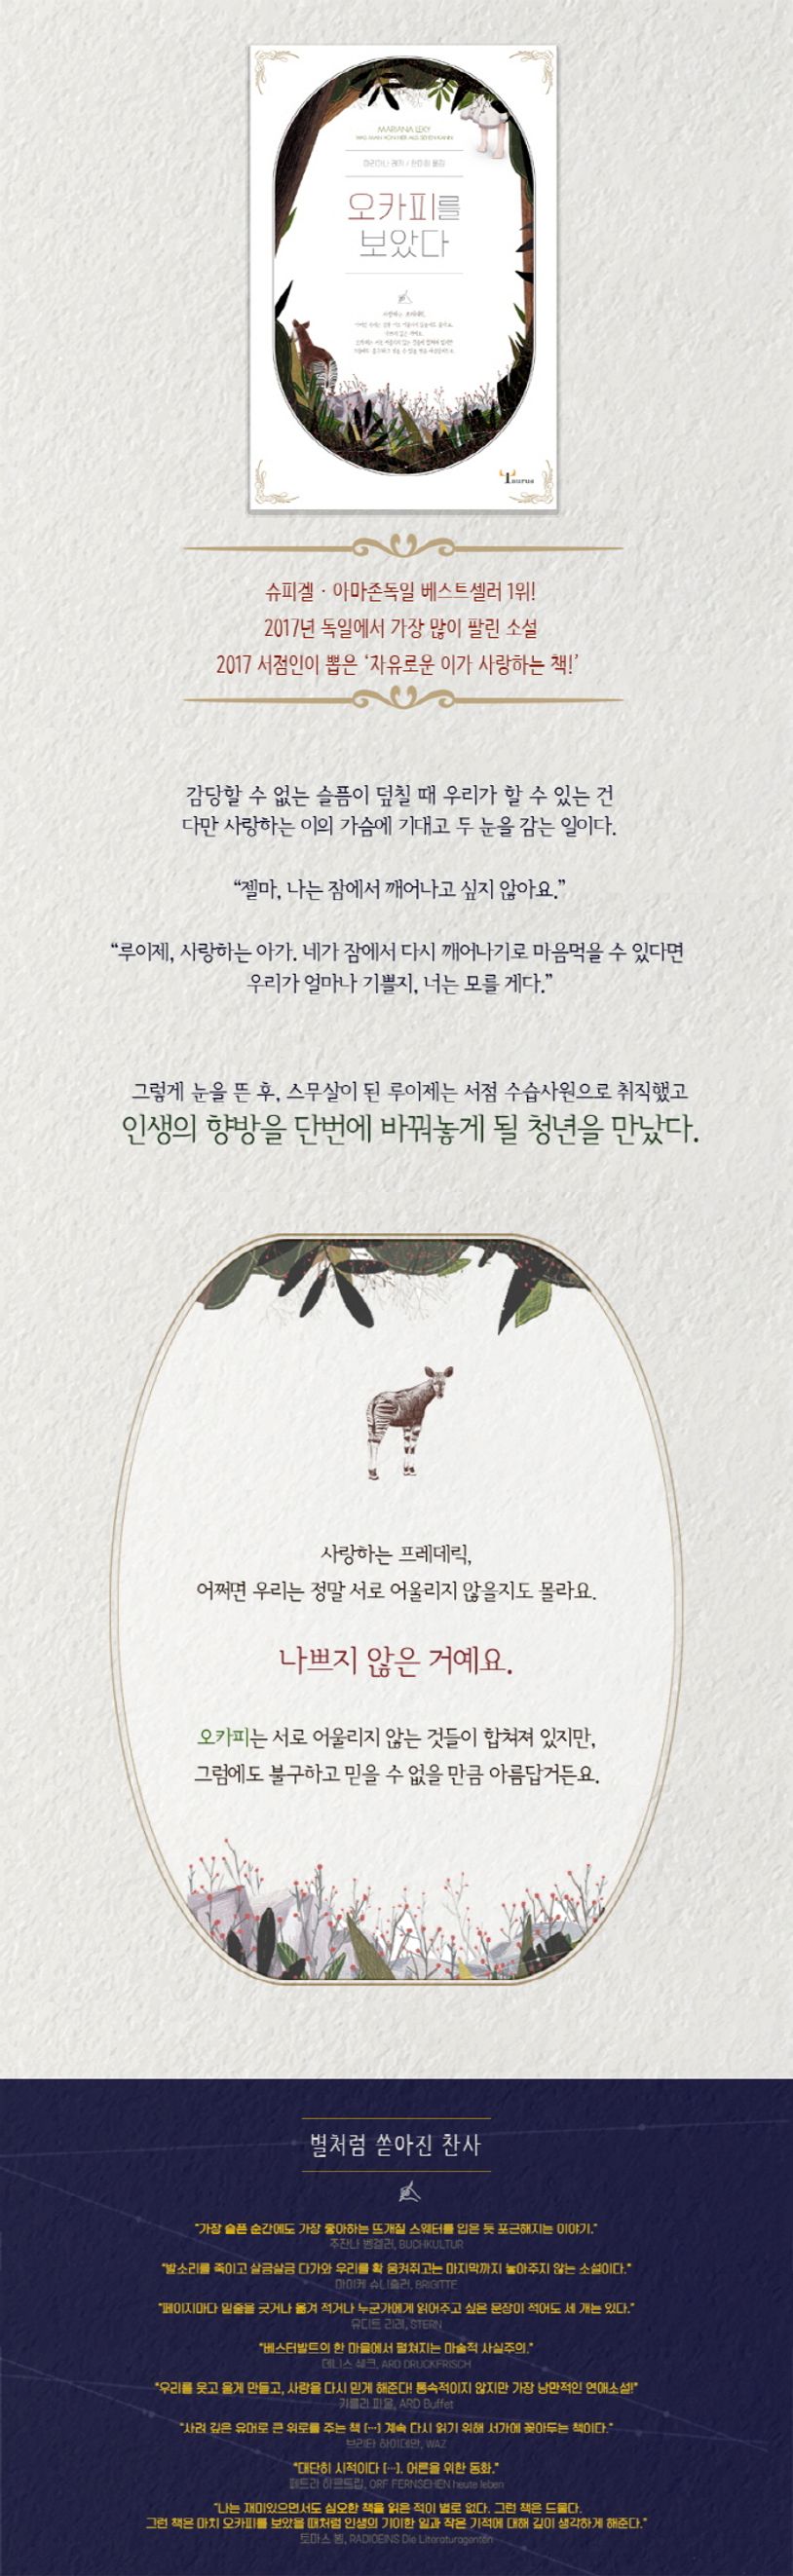 MARIANA LEKY
WAS MAN VON HIER AUS SEHEN KANN
마리아나 레키 / 한미희 옮김
오카피를
보았다
사랑하는 프레데릭,
Taurus
슈피겔 · 아마존독일 베스트셀러 1위!
2017년 독일에서 가장 많이 팔린 소설
2017 서점인이 뽑은 ‘자유로운 이가 사랑하는 책!’
감당할 수 없는 슬픔이 덮칠 때 우리가 할 수 있는 건
다만 사랑하는 이의 가슴에 기대고 두 눈을 감는 일이다.
“젤마, 나는 잠에서 깨어나고 싶지 않아요.”
“루이제, 사랑하는 아가. 네가 잠에서 다시 깨어나기로 마음먹을 수 있다면
우리가 얼마나 기쁠지, 너는 모를 게다.”
그렇게 눈을 뜬 후, 스무살이 된 루이제는 서점 수습사원으로 취직했고
인생의 향방을 단번에 바꿔놓게 될 청년을 만났다.
사랑하는 프레데릭,
어쩌면 우리는 정말 서로 어울리지 않을지도 몰라요.
나쁘지 않은 거예요.
오카피는 서로 어울리지 않는 것들이 합쳐져 있지만,
그럼에도 불구하고 믿을 수 없을 만큼 아름답거든요.
별처럼 쏟아진 찬사
"가장 슬픈 순간에도 가장 좋아하는 뜨개질 스웨터를 입은 듯 포근해지는 이야기."
주잔나 벵겔러, BUCHKULTUR
"발소리를 죽이고 살금살금 다가와 우리를 확 움켜쥐고는 마지막까지 놓아주지 않는 소설이다."
마이케 슈니출러, BRIGITTE
"페이지마다 밑줄을 긋거나 옮겨 적거나 누군가에게 읽어주고 싶은 문장이 적어도 세 개는 있다."
유디트 리레, STERN
"베스터발트의 한 마을에서 펼쳐지는 마술적 사실주의."
데니스 쉐크, ARD DRUCKFRISCH
"우리를 웃고 울게 만들고, 사랑을 다시 믿게 해준다! 통속적이지 않지만 가장 낭만적인 연애소설!"
카를라 파울, ARD Buffet
"사려 깊은 유머로 큰 위로를 주는 책 […] 계속 다시 읽기 위해 서가에 꽂아두는 책이다."
브리타 하이데만, WAZ
"대단히 시적이다 […]. 어른을 위한 동화."
페트라 하르트립, ORF FERNSEHEN heute leben
"나는 재미있으면서도 심오한 책을 읽은 적이 별로 없다. 그런 책은 드물다.
그런 책은 마치 오카피를 보았을 때처럼 인생의 기이한 일과 작은 기적에 대해 깊이 생각하게 해준다."
토마스 뵘, RADIOEINS Die Literaturagenten